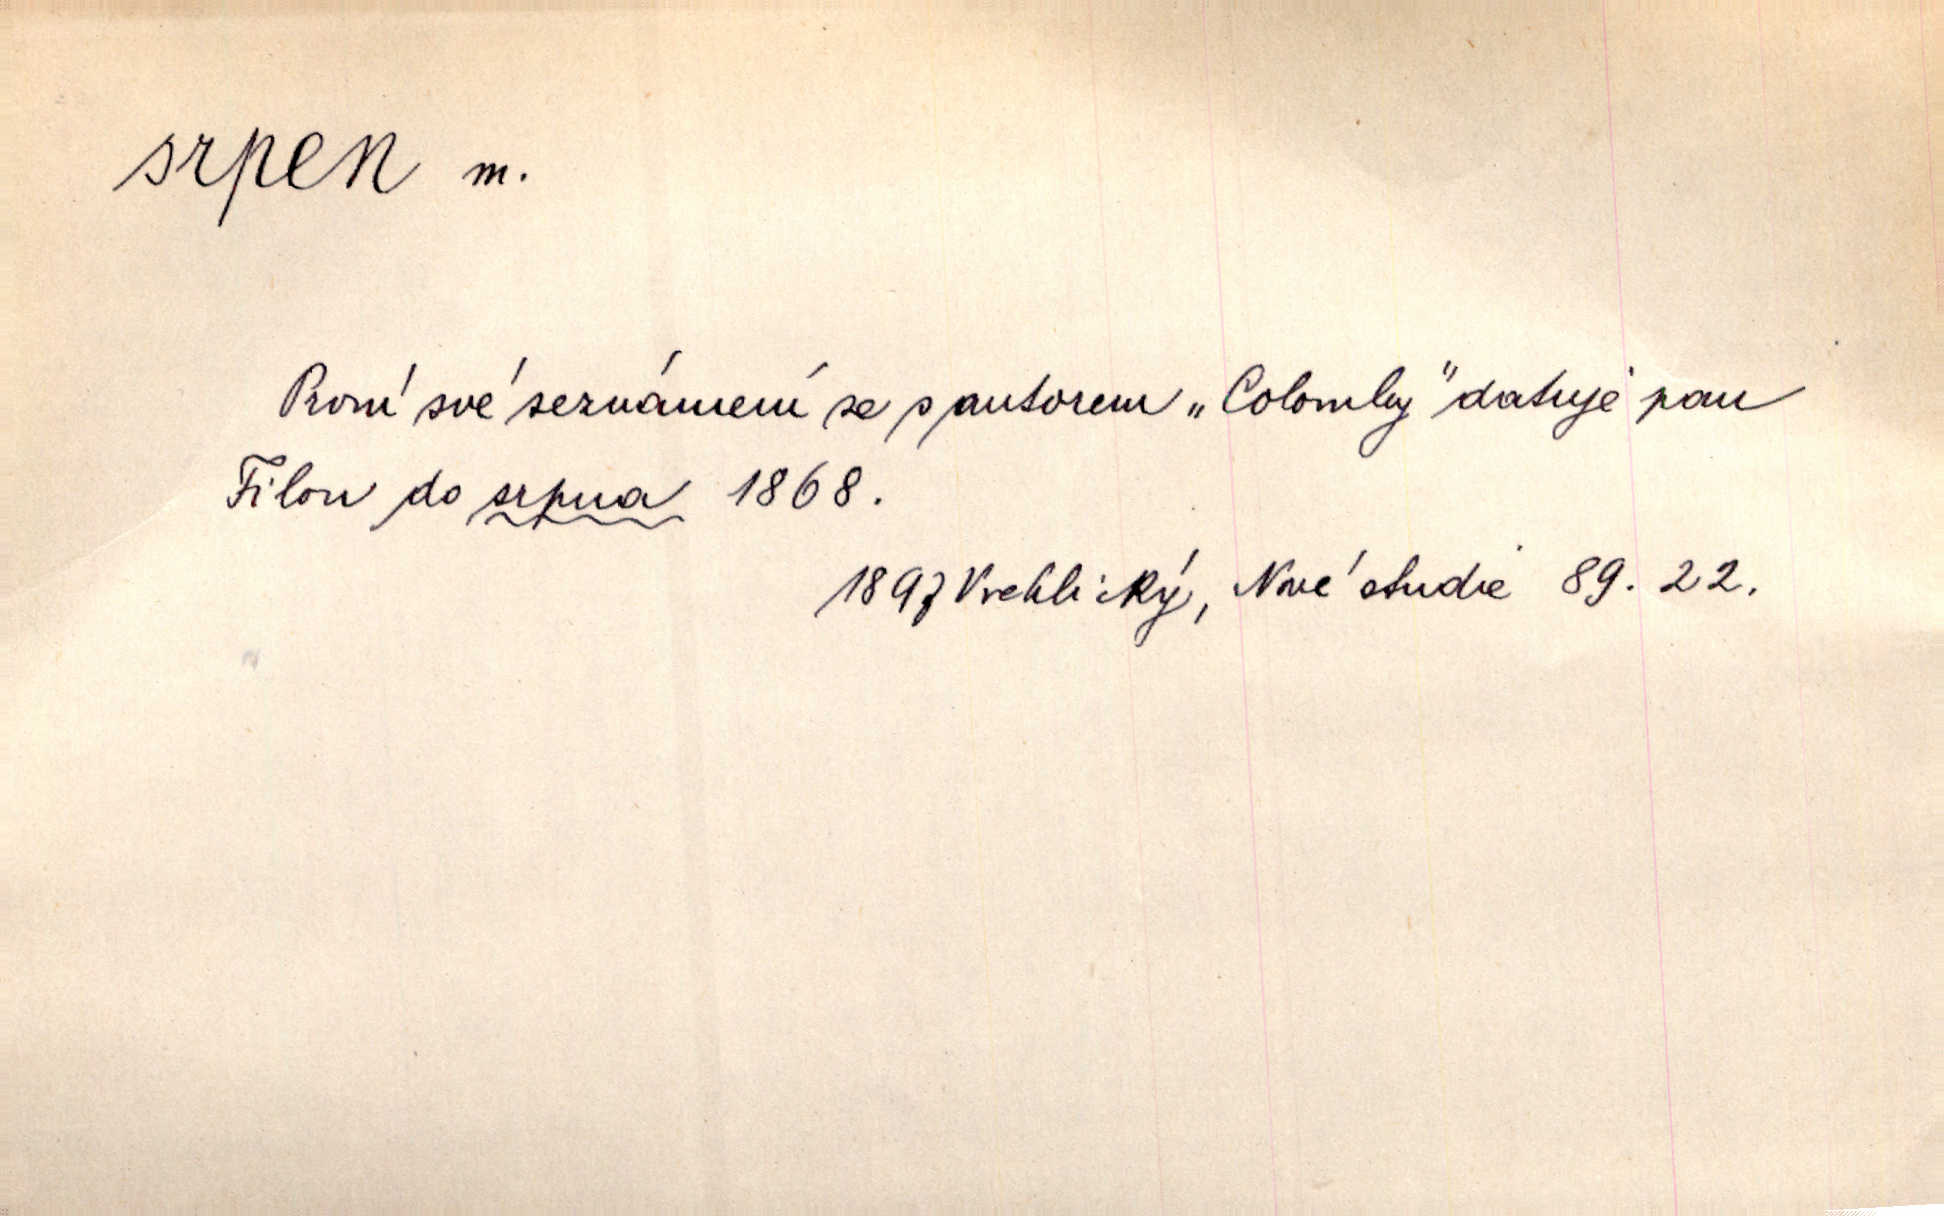 srpen m.
První své seznámení se s autorem „Colomby" datuje pan
Filon do srpna 1868.
1897 Vrchlický, Nové studie 89. 22.